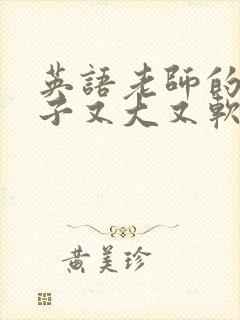 英語老師的
子又大又軟
黃美珍